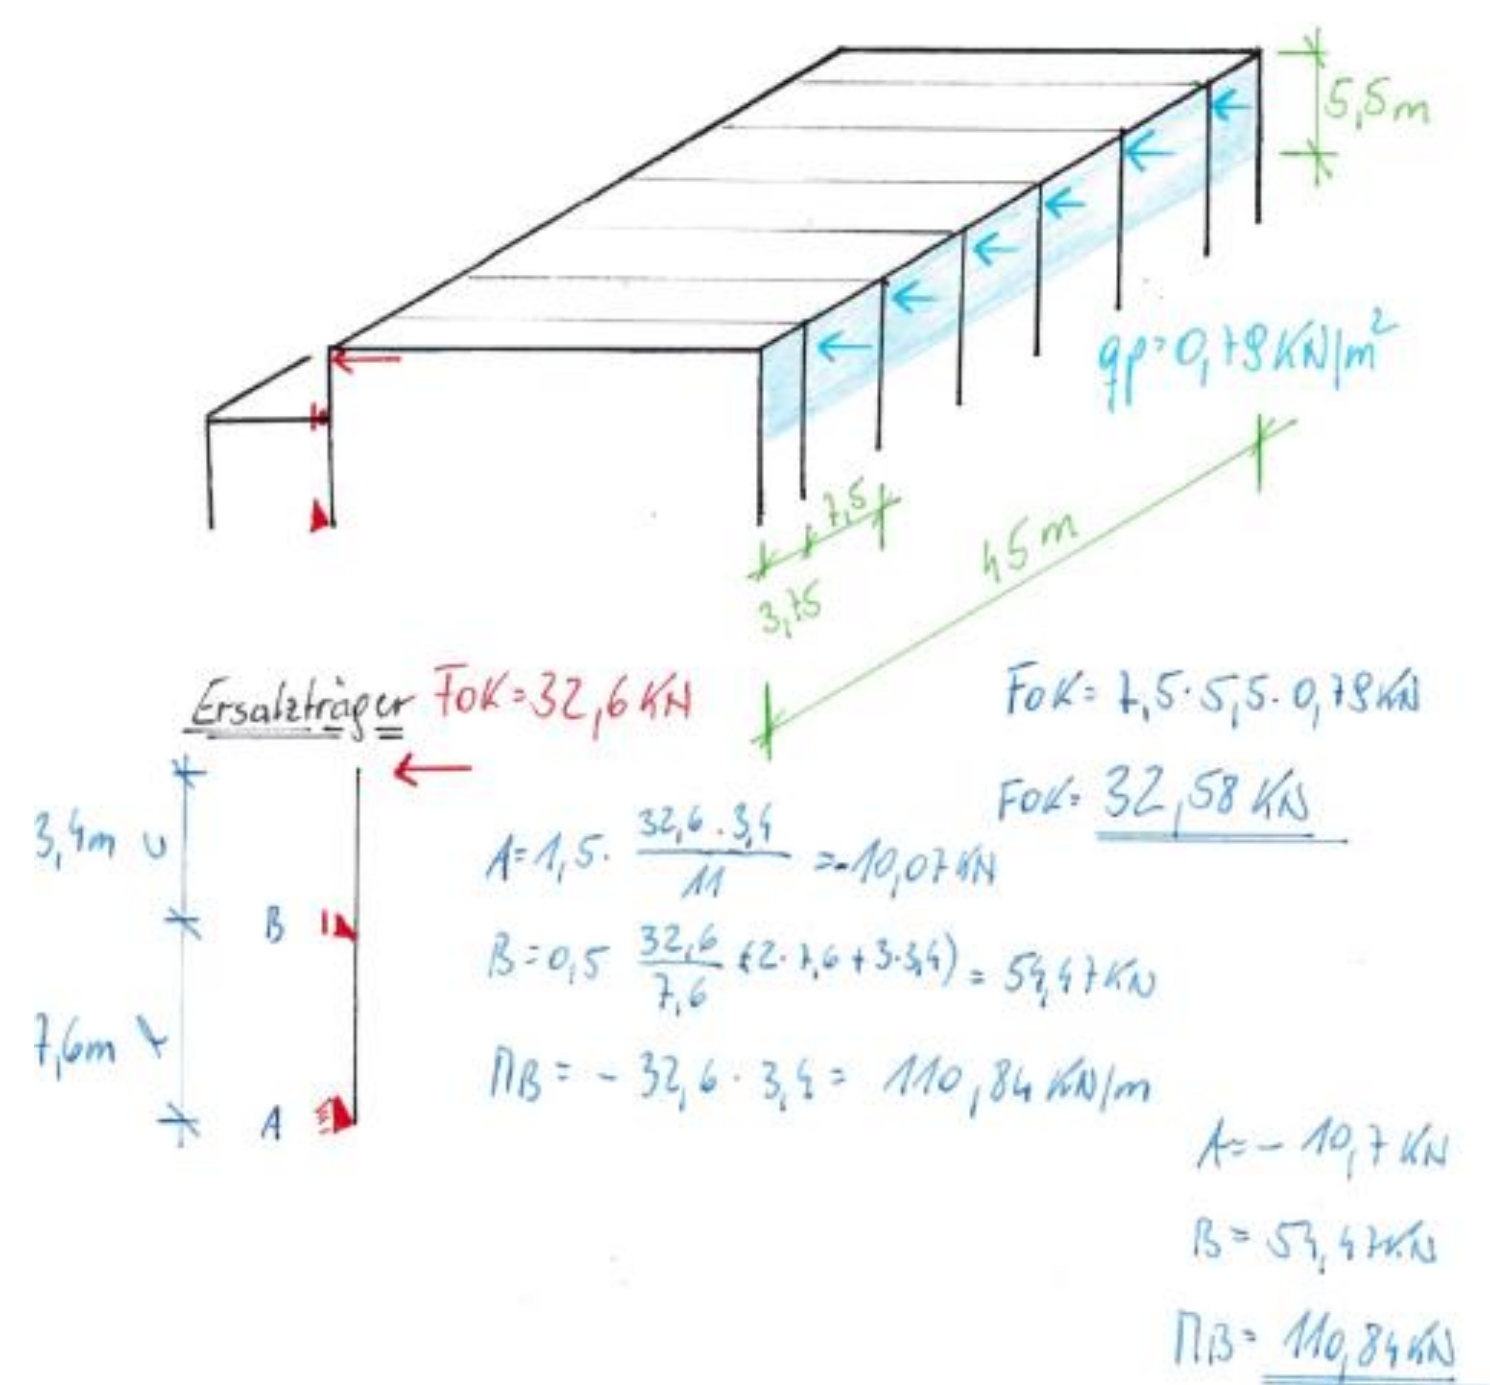 5,5m
qp=0,79KN/m²
7,5
3,75
45m
Ersatzträger FOK=32,6KN
FOK= 7,5·5,5·0,79KN
FOK= 32,58KN
3,4m
B
7,6m
A
A=1,5· 32,6·3,4 / 11 =-10,07KN
B=0,5 32,6 / 7,6 (2·7,6+3·3,4) = 54,47KN
MB= - 32,6·3,4= 110,84KN/m
A=- 10,7KN
B= 54,47KN
MB= 110,84KN